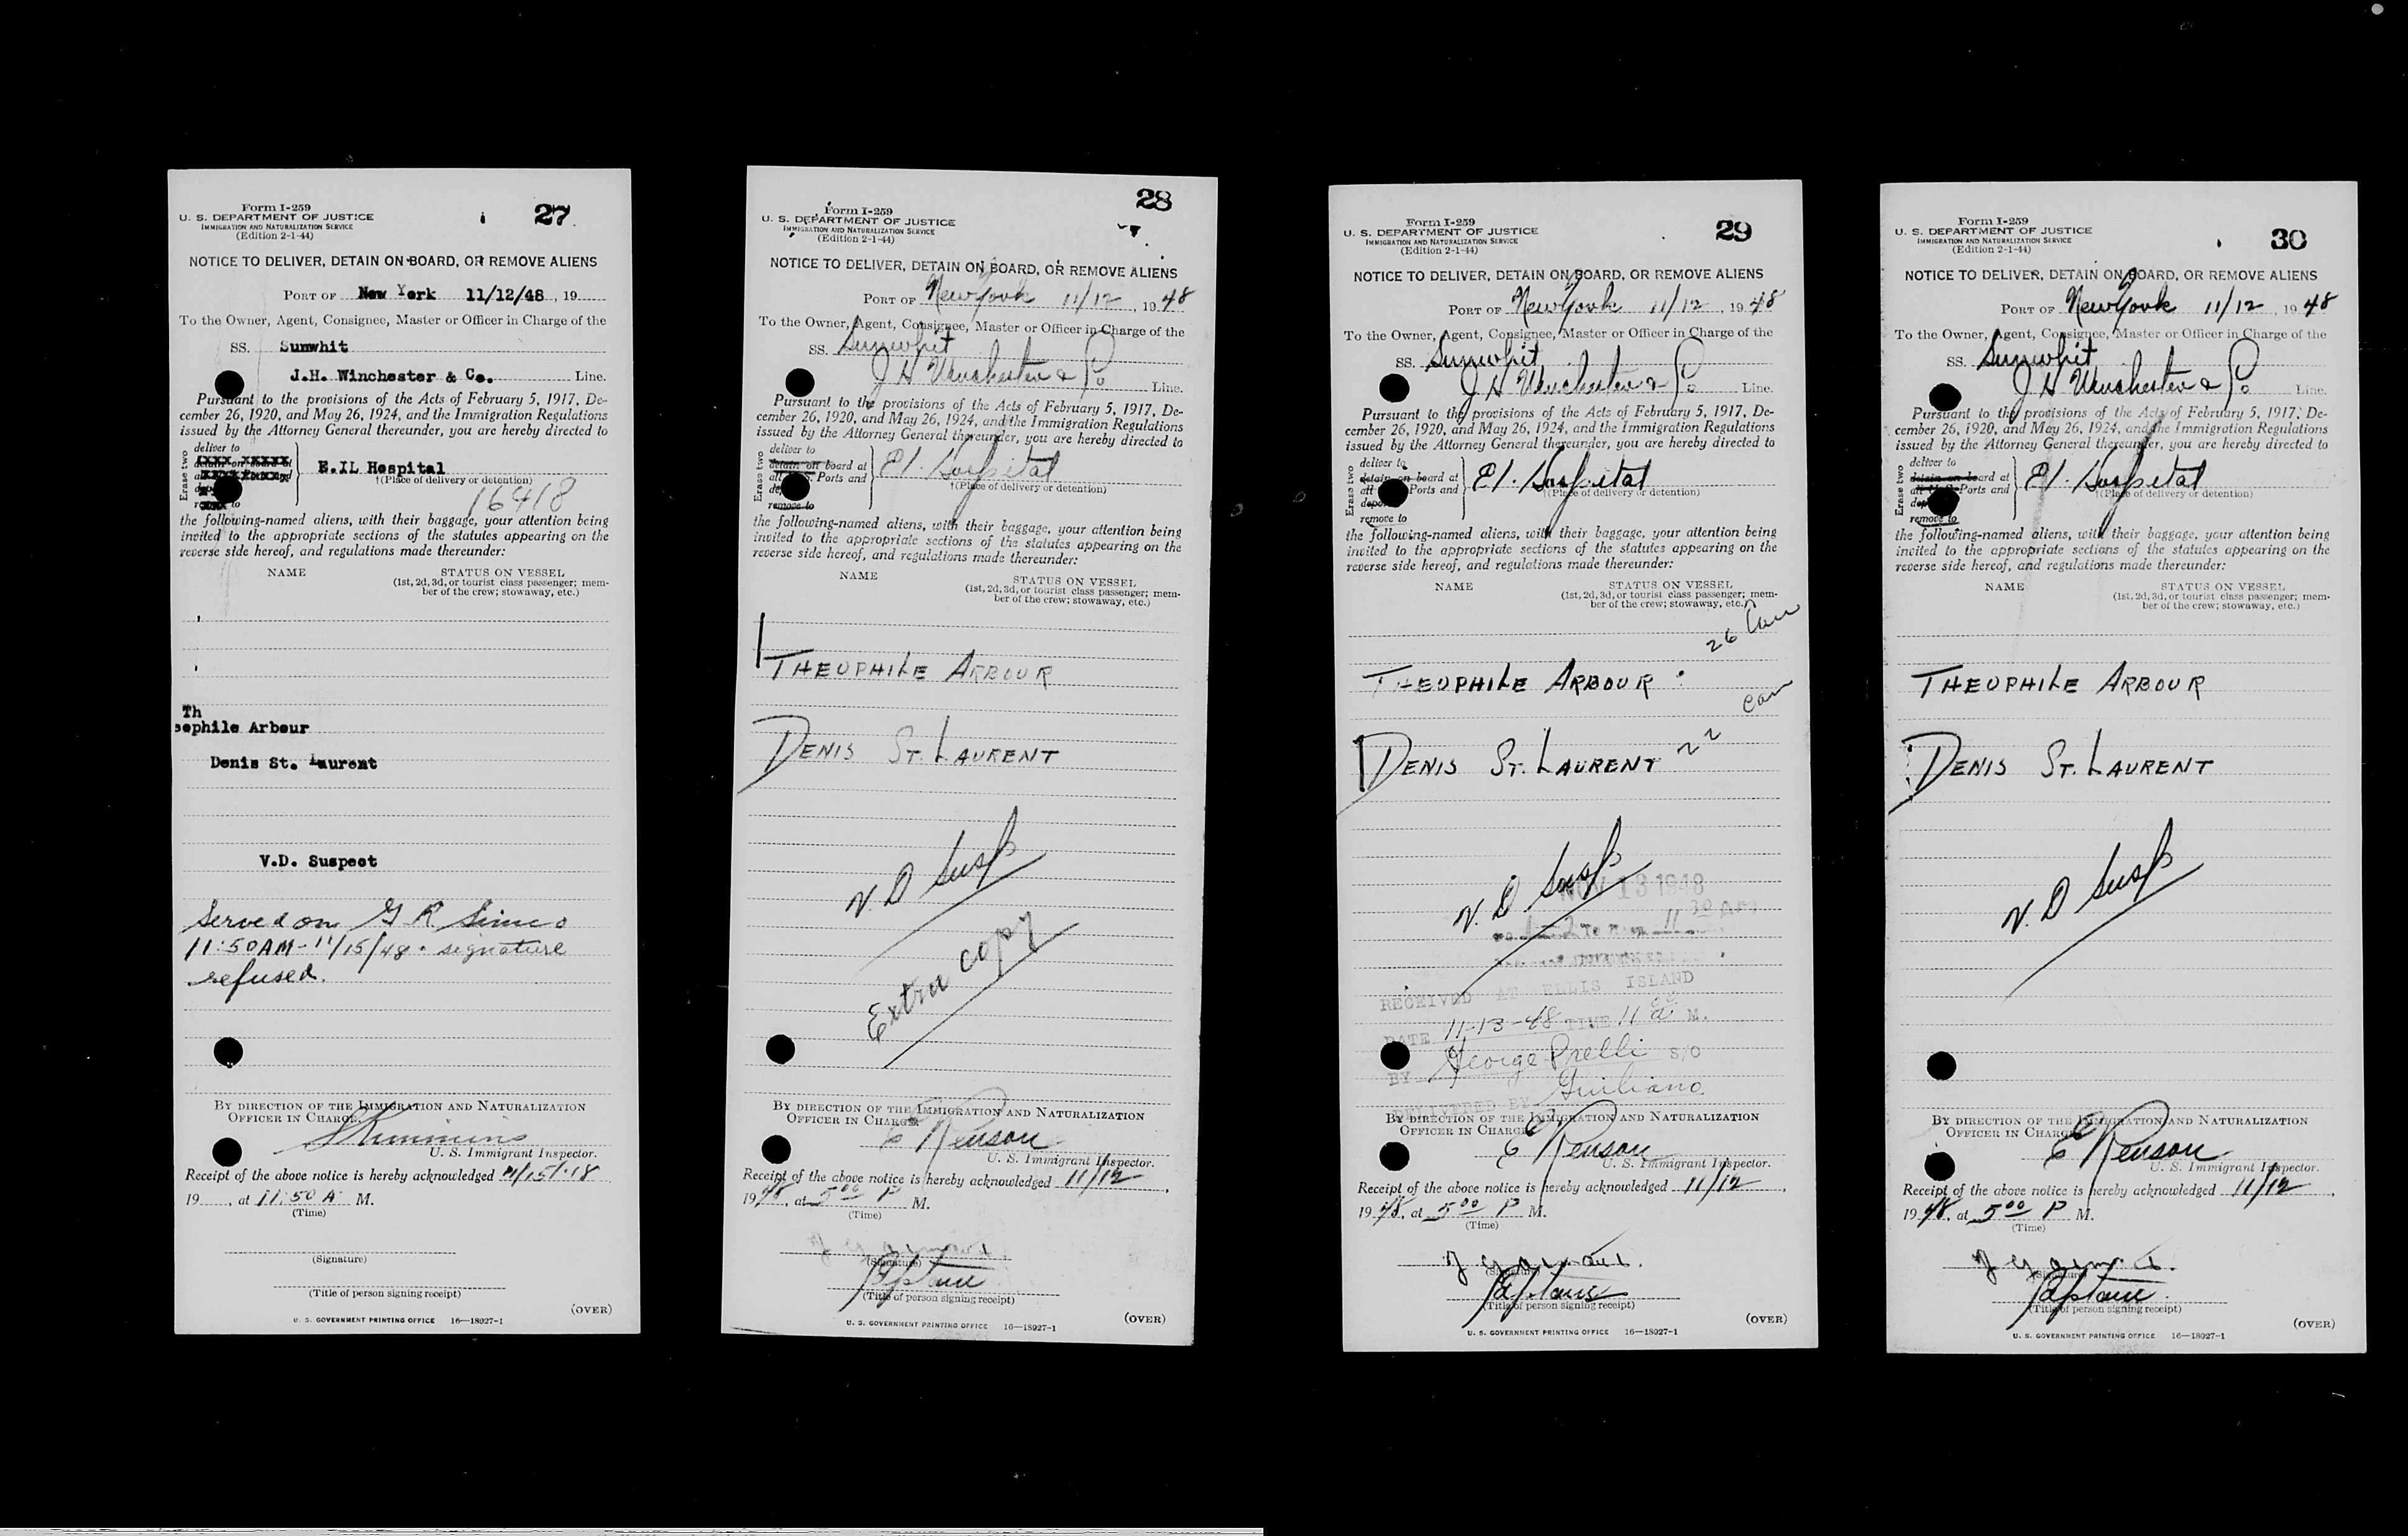 27
Form I-259
U. S. DEPARTMENT OF JUSTICE
IMMIGRATION AND NATURALIZATION SERVICE
(Edition 2-1-44)
NOTICE TO DELIVER, DETAIN ON BOARD, OR REMOVE ALIENS
PORT OF New York 11/12/48, 19
To the Owner, Agent, Consignee, Master or Officer in Charge of the
SS. Sumwhit
J.H. Winchester & Co. Line.
Pursuant to the provisions of the Acts of February 5, 1917, De-
cember 26, 1920, and May 26, 1924, and the Immigration Regulations
issued by the Attorney General thereunder, you are hereby directed to
Erase two
deliver to
E.IL Hospital
†(Place of delivery or detention)
16418
the following-named aliens, with their baggage, your attention being
invited to the appropriate sections of the statutes appearing on the
reverse side hereof, and regulations made thereunder:
NAME STATUS ON VESSEL
(1st, 2d, 3d, or tourist class passenger; mem-
ber of the crew; stowaway, etc.)
Th
eophile Arbour
Denis St. Laurent
V.D. Suspect
Served on G R
11:50AM - 11/15/48 - signature
refused.
BY DIRECTION OF THE IMMIGRATION AND NATURALIZATION
OFFICER IN CHARGE.
U. S. Immigrant Inspector.
Receipt of the above notice is hereby acknowledged 11/15/48
19 , at 11:50 A M.
(Time)
(Signature)
(Title of person signing receipt)
(OVER)
U. S. GOVERNMENT PRINTING OFFICE 16—18927-1
28
Form I-259
U. S. DEPARTMENT OF JUSTICE
IMMIGRATION AND NATURALIZATION SERVICE
(Edition 2-1-44)
NOTICE TO DELIVER, DETAIN ON BOARD, OR REMOVE ALIENS
PORT OF New York 11/12, 1948
To the Owner, Agent, Consignee, Master or Officer in Charge of the
SS. Sumwhit
J H Winchester & Co Line.
Pursuant to the provisions of the Acts of February 5, 1917, De-
cember 26, 1920, and May 26, 1924, and the Immigration Regulations
issued by the Attorney General thereunder, you are hereby directed to
Erase two
deliver to
detain on board at
all Ports and
remove to
E I. Hospital
†(Place of delivery or detention)
the following-named aliens, with their baggage, your attention being
invited to the appropriate sections of the statutes appearing on the
reverse side hereof, and regulations made thereunder:
NAME STATUS ON VESSEL
(1st, 2d, 3d, or tourist class passenger; mem-
ber of the crew; stowaway, etc.)
THEOPHILE ARBOUR
DENIS ST. LAURENT
V. D Susp
Extra copy
BY DIRECTION OF THE IMMIGRATION AND NATURALIZATION
OFFICER IN CHARGE.
E Renson
U. S. Immigrant Inspector.
Receipt of the above notice is hereby acknowledged 11/12,
1948, at 5 00 P M.
(Time)
(Signature)
Captain
(Title of person signing receipt)
(OVER)
U. S. GOVERNMENT PRINTING OFFICE 16—18927-1
29
Form I-259
U. S. DEPARTMENT OF JUSTICE
IMMIGRATION AND NATURALIZATION SERVICE
(Edition 2-1-44)
NOTICE TO DELIVER, DETAIN ON BOARD, OR REMOVE ALIENS
PORT OF New York 11/12, 1948
To the Owner, Agent, Consignee, Master or Officer in Charge of the
SS. Sumwhit
J H Winchester & Co Line.
Pursuant to the provisions of the Acts of February 5, 1917, De-
cember 26, 1920, and May 26, 1924, and the Immigration Regulations
issued by the Attorney General thereunder, you are hereby directed to
Erase two
deliver to
detain on board at
all Ports and
remove to
E I. Hospital
†(Place of delivery or detention)
the following-named aliens, with their baggage, your attention being
invited to the appropriate sections of the statutes appearing on the
reverse side hereof, and regulations made thereunder:
NAME STATUS ON VESSEL
(1st, 2d, 3d, or tourist class passenger; mem-
ber of the crew; stowaway, etc.)
26 Can
THEOPHILE ARBOUR
Can
DENIS ST. LAURENT 22
V. D Susp
NOV 13 1948
RECEIVED AT ELLIS ISLAND
DATE 11-13-48 TIME 11 a M.
BY George Prelli S/O
DELIVERED BY Guiliano
BY DIRECTION OF THE IMMIGRATION AND NATURALIZATION
OFFICER IN CHARGE.
E Renson
U. S. Immigrant Inspector.
Receipt of the above notice is hereby acknowledged 11/12,
1948, at 5 00 P M.
(Time)
(Signature)
Captain
(Title of person signing receipt)
(OVER)
U. S. GOVERNMENT PRINTING OFFICE 16—18927-1
30
Form I-259
U. S. DEPARTMENT OF JUSTICE
IMMIGRATION AND NATURALIZATION SERVICE
(Edition 2-1-44)
NOTICE TO DELIVER, DETAIN ON BOARD, OR REMOVE ALIENS
PORT OF New York 11/12, 1948
To the Owner, Agent, Consignee, Master or Officer in Charge of the
SS. Sumwhit
J H Winchester & Co Line.
Pursuant to the provisions of the Acts of February 5, 1917, De-
cember 26, 1920, and May 26, 1924, and the Immigration Regulations
issued by the Attorney General thereunder, you are hereby directed to
Erase two
deliver to
detain on board at
all U. S. Ports and
remove to
E I. Hospital
†(Place of delivery or detention)
the following-named aliens, with their baggage, your attention being
invited to the appropriate sections of the statutes appearing on the
reverse side hereof, and regulations made thereunder:
NAME STATUS ON VESSEL
(1st, 2d, 3d, or tourist class passenger; mem-
ber of the crew; stowaway, etc.)
THEOPHILE ARBOUR
DENIS ST. LAURENT
V. D Susp
BY DIRECTION OF THE IMMIGRATION AND NATURALIZATION
OFFICER IN CHARGE.
E Renson
U. S. Immigrant Inspector.
Receipt of the above notice is hereby acknowledged 11/12,
1948, at 5 00 P M.
(Time)
(Signature)
Captain
(Title of person signing receipt)
(OVER)
U. S. GOVERNMENT PRINTING OFFICE 16—18927-1